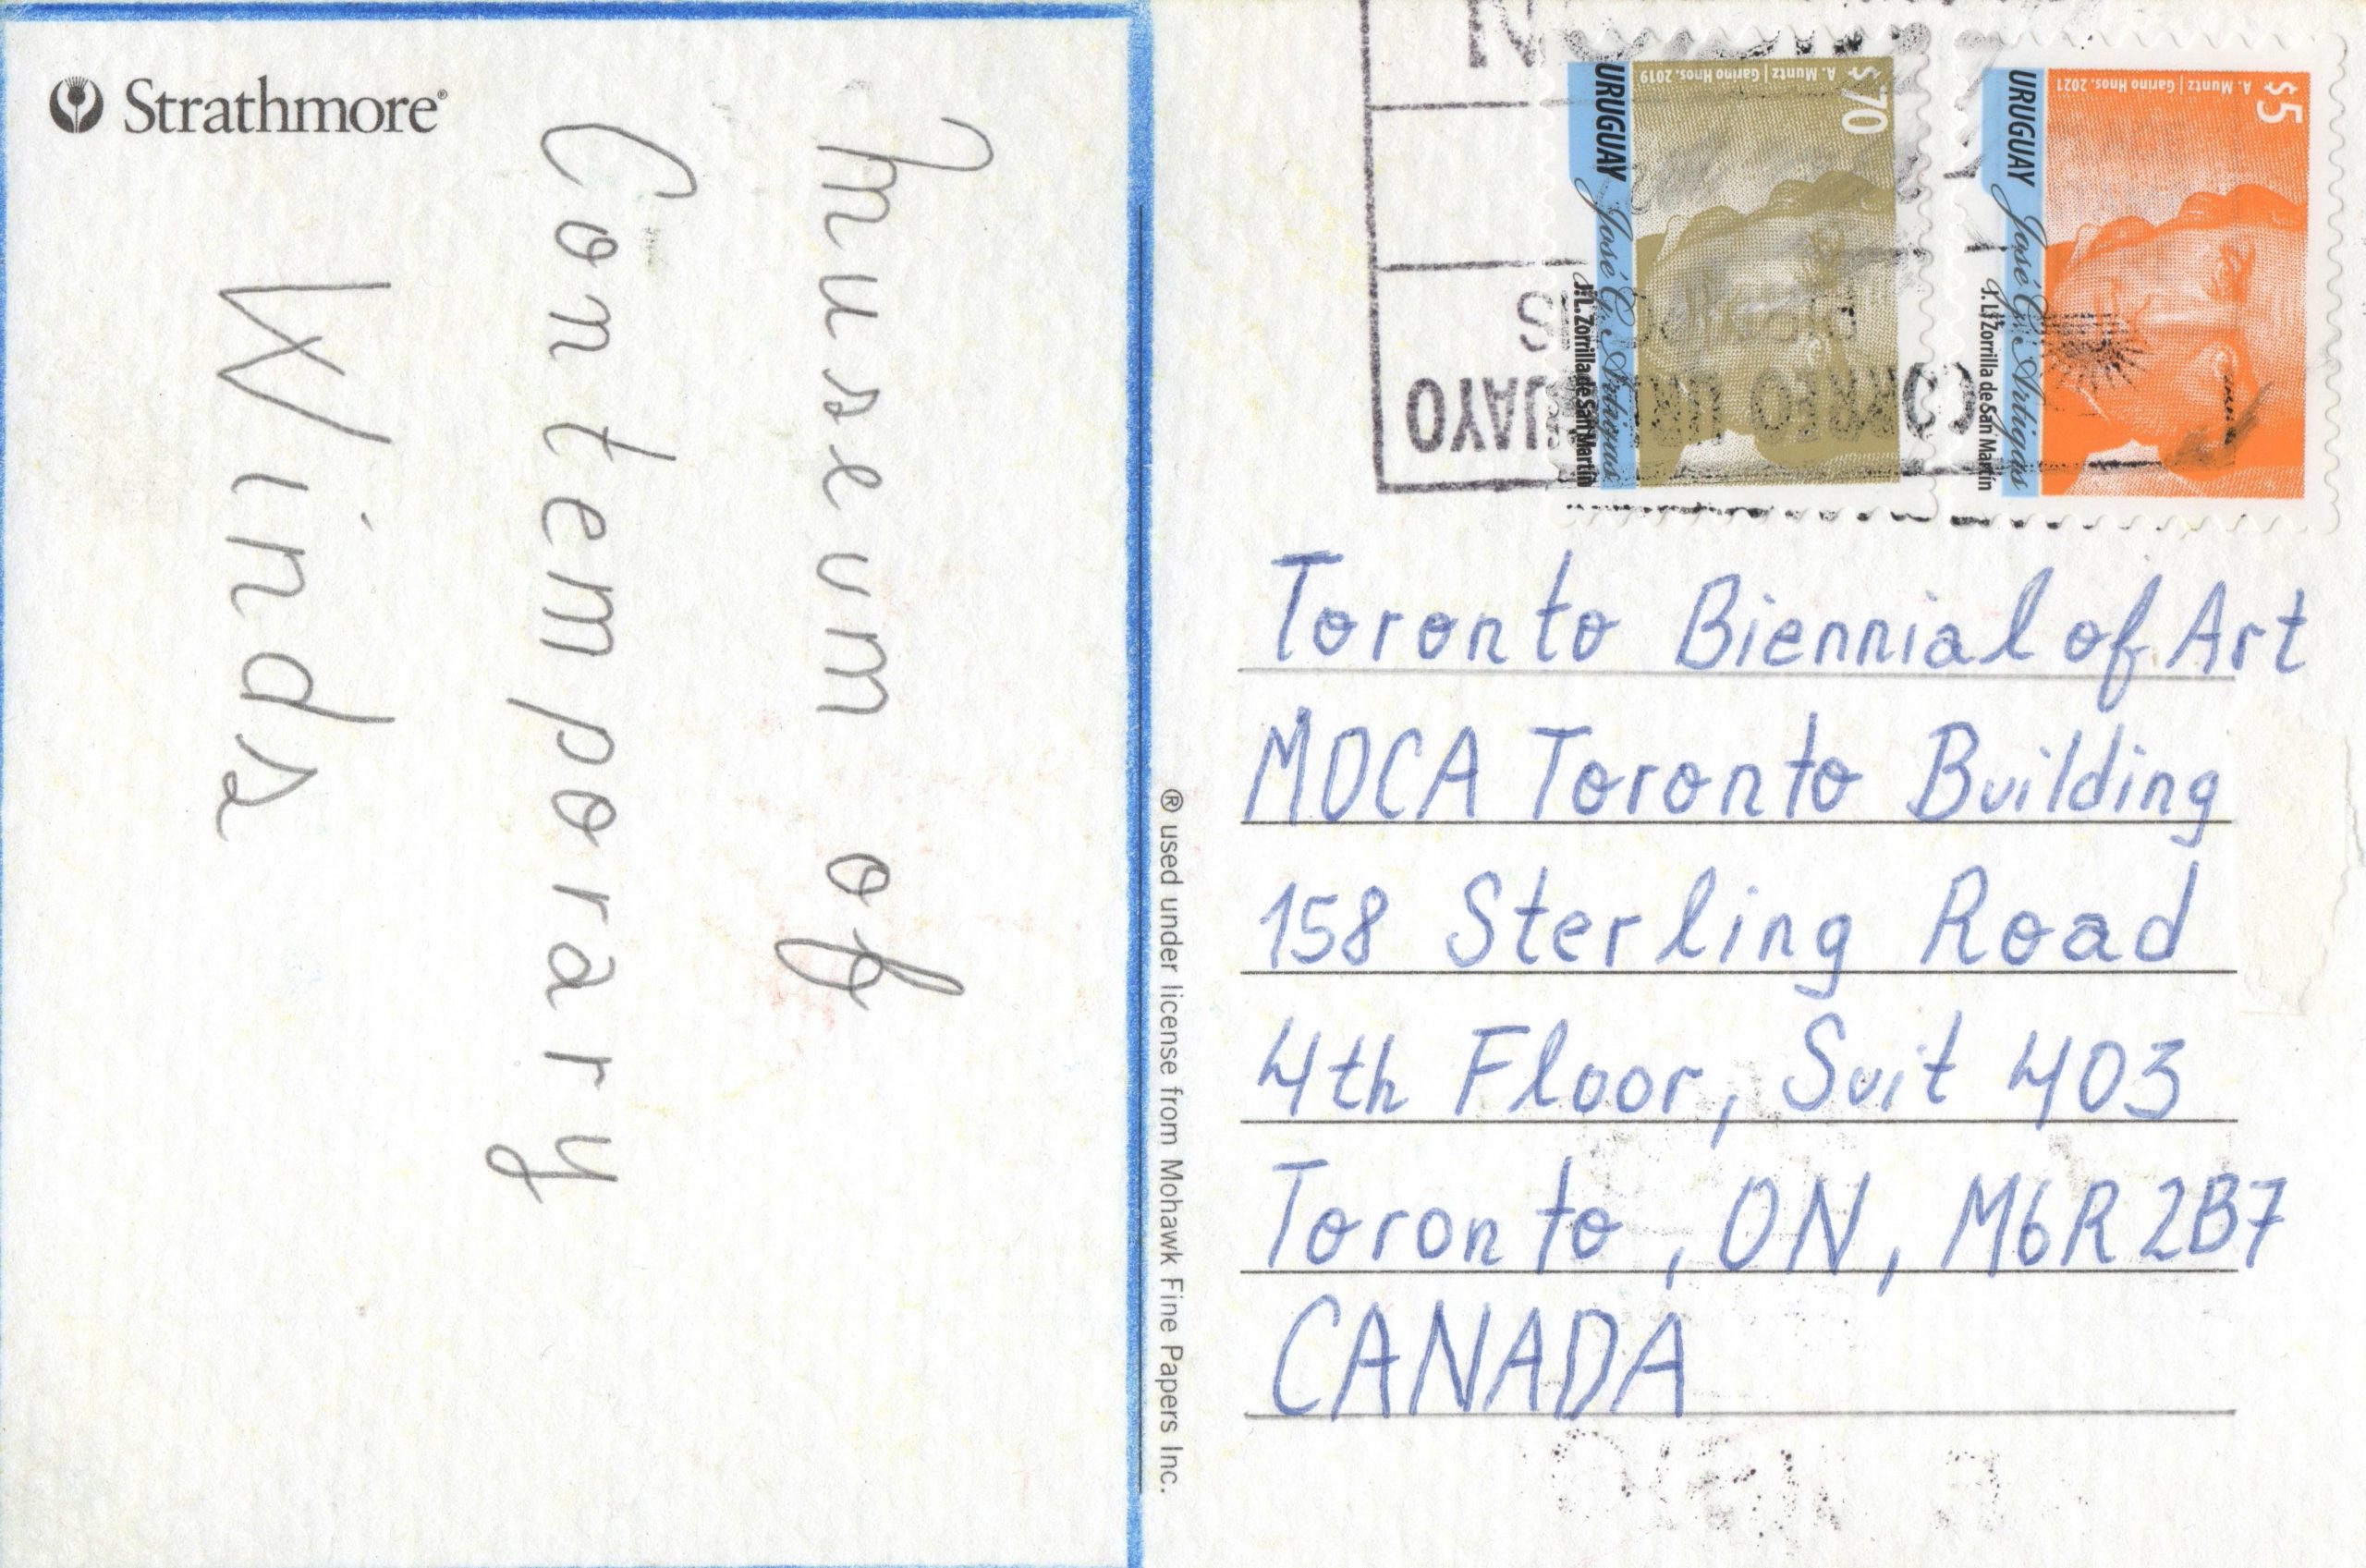 Strathmore®
Museum of
Contemporary
Winds
® used under license from Mohawk Fine Papers Inc.
URUGUAY
José G. Artigas
J. L. Zorrilla de San Martín
$70
A. Muntz | Garino Hnos. 2019
URUGUAY
José G. Artigas
J. L. Zorrilla de San Martín
$5
A. Muntz | Garino Hnos. 2021
CORREO URUGUAYO
Toronto Biennial of Art
MOCA Toronto Building
158 Sterling Road
4th Floor, Suit 403
Toronto, ON, M6R 2B7
CANADA